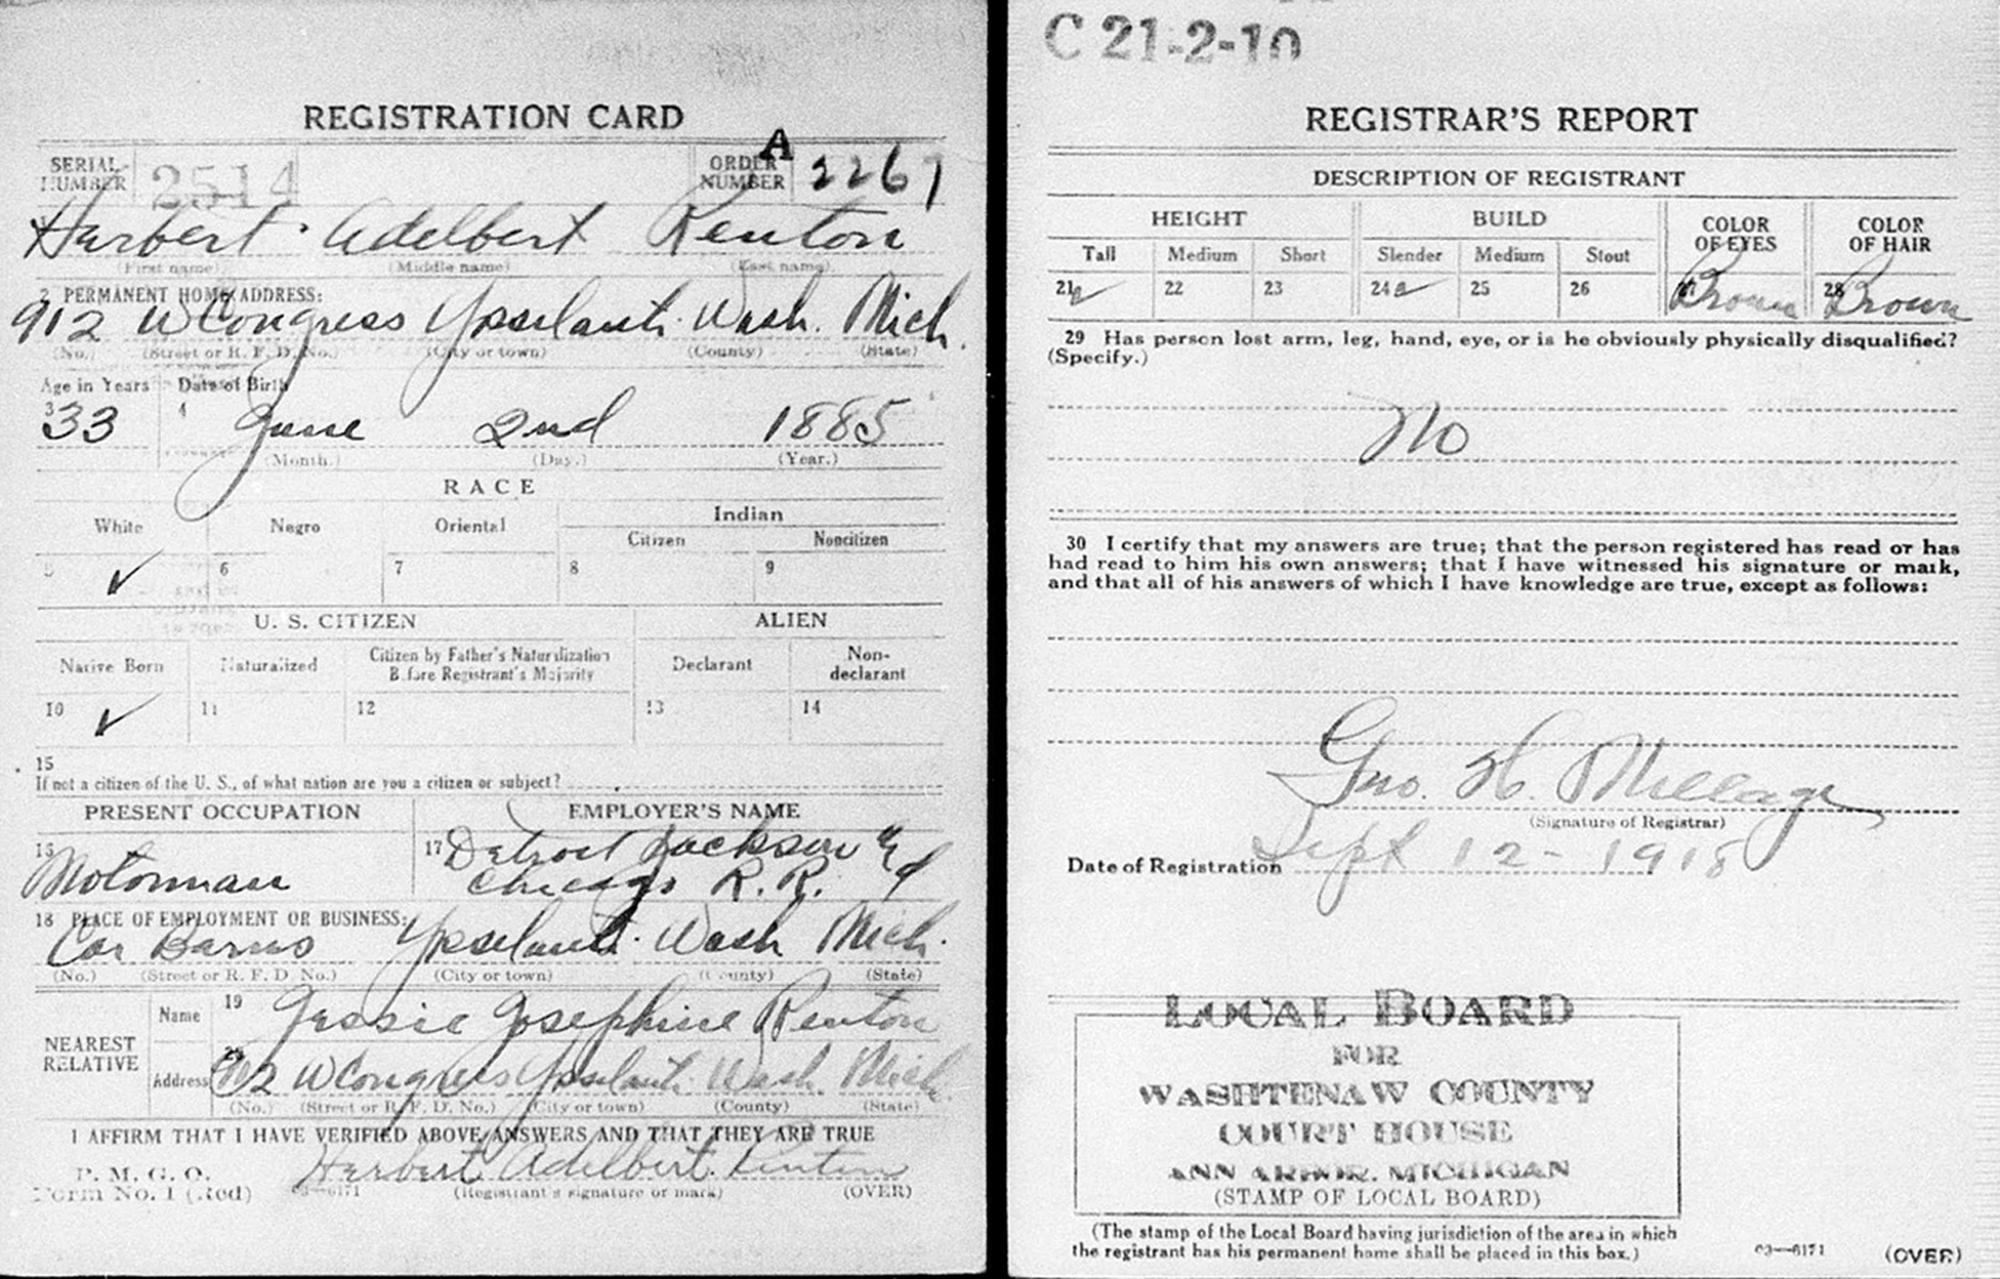 REGISTRATION CARD
SERIAL NUMBER 2514 ORDER NUMBER A 2267
1 Herbert Adelbert Renton
(First name) (Middle name) (Last name)
2 PERMANENT HOME ADDRESS:
912 W Congress Ypsilanti Wash. Mich.
(No.) (Street or R. F. D. No.) (City or town) (County) (State)
Age in Years Date of Birth
3 33 4 June 2nd 1885
(Month.) (Day.) (Year.)
RACE
White Negro Oriental Indian
Citizen Noncitizen
5 ✓ 6 7 8 9
U. S. CITIZEN ALIEN
Native Born Naturalized Citizen by Father's Naturalization Before Registrant's Majority Declarant Non-declarant
10 ✓ 11 12 13 14
15
If not a citizen of the U. S., of what nation are you a citizen or subject?
PRESENT OCCUPATION EMPLOYER'S NAME
16 Motorman 17 Detroit Jackson &
Chicago R. R.
18 PLACE OF EMPLOYMENT OR BUSINESS:
Car Barns Ypsilanti Wash Mich.
(No.) (Street or R. F. D. No.) (City or town) (County) (State)
NEAREST RELATIVE
Name 19 Jessie Josephine Renton
Address 20 912 W Congress Ypsilanti Wash. Mich.
(No.) (Street or R. F. D. No.) (City or town) (County) (State)
I AFFIRM THAT I HAVE VERIFIED ABOVE ANSWERS AND THAT THEY ARE TRUE
P. M. G. O.
Form No. 1 (Red) 03—6171 Herbert Adelbert Renton
(Registrant's signature or mark) (OVER)
C 21-2-10
REGISTRAR'S REPORT
DESCRIPTION OF REGISTRANT
HEIGHT BUILD COLOR OF EYES COLOR OF HAIR
Tall Medium Short Slender Medium Stout
21 ✓ 22 23 24 25 26 Brown 28 Brown
29 Has person lost arm, leg, hand, eye, or is he obviously physically disqualified?
(Specify.)
No
30 I certify that my answers are true; that the person registered has read or has
had read to him his own answers; that I have witnessed his signature or mark,
and that all of his answers of which I have knowledge are true, except as follows:
Geo. H. Millage
(Signature of Registrar)
Date of Registration Sept 12 - 1918
LOCAL BOARD
FOR
WASHTENAW COUNTY
COURT HOUSE
ANN ARBOR, MICHIGAN
(STAMP OF LOCAL BOARD)
(The stamp of the Local Board having jurisdiction of the area in which
the registrant has his permanent home shall be placed in this box.)
03—6171 (OVER)